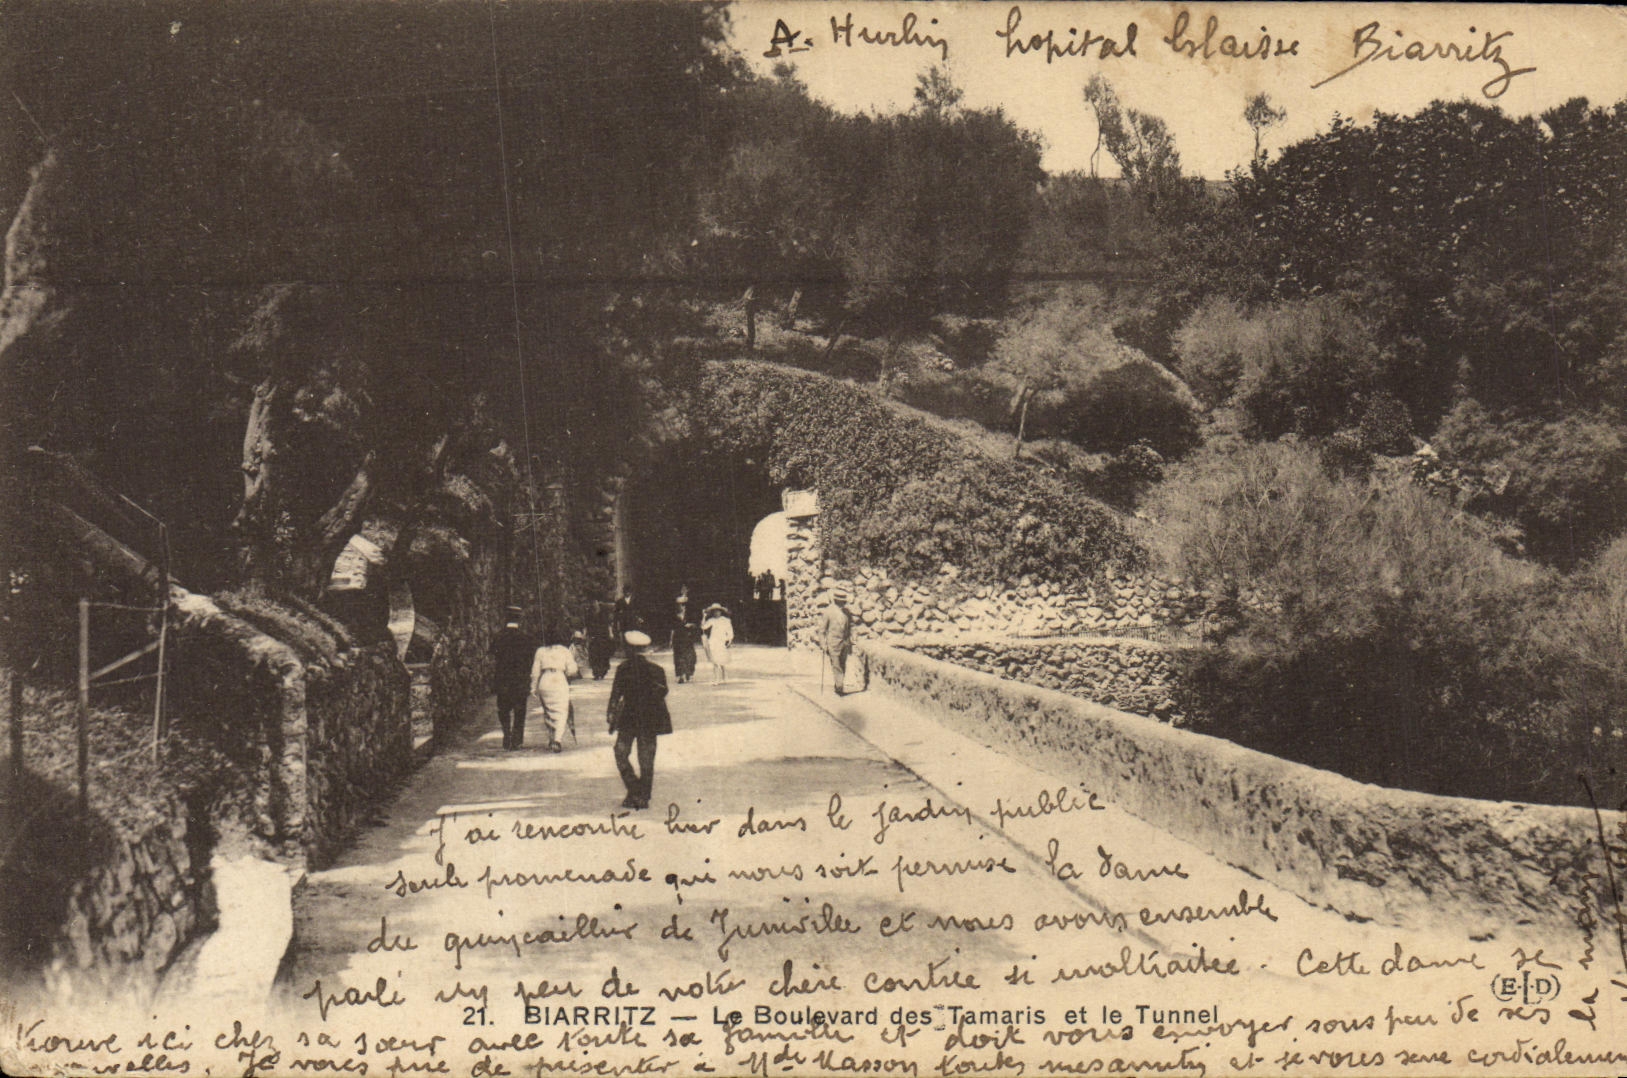 A. Hurlin hopital Blaise Biarritz
J'ai rencontré hier dans le jardin public
seule promenade qui nous soit permise la dame
du quincaillier de Juniville et nous avons ensemble
parlé un peu de notre chère contrée si maltraitée. Cette dame se
ELD
21. BIARRITZ — Le Boulevard des Tamaris et le Tunnel
trouve ici chez sa sœur avec toute sa famille et doit vous envoyer sous peu de ses
nouvelles. Je vous prie de présenter à Mde Masson toutes mes amitiés et je vous serre cordialement
la main